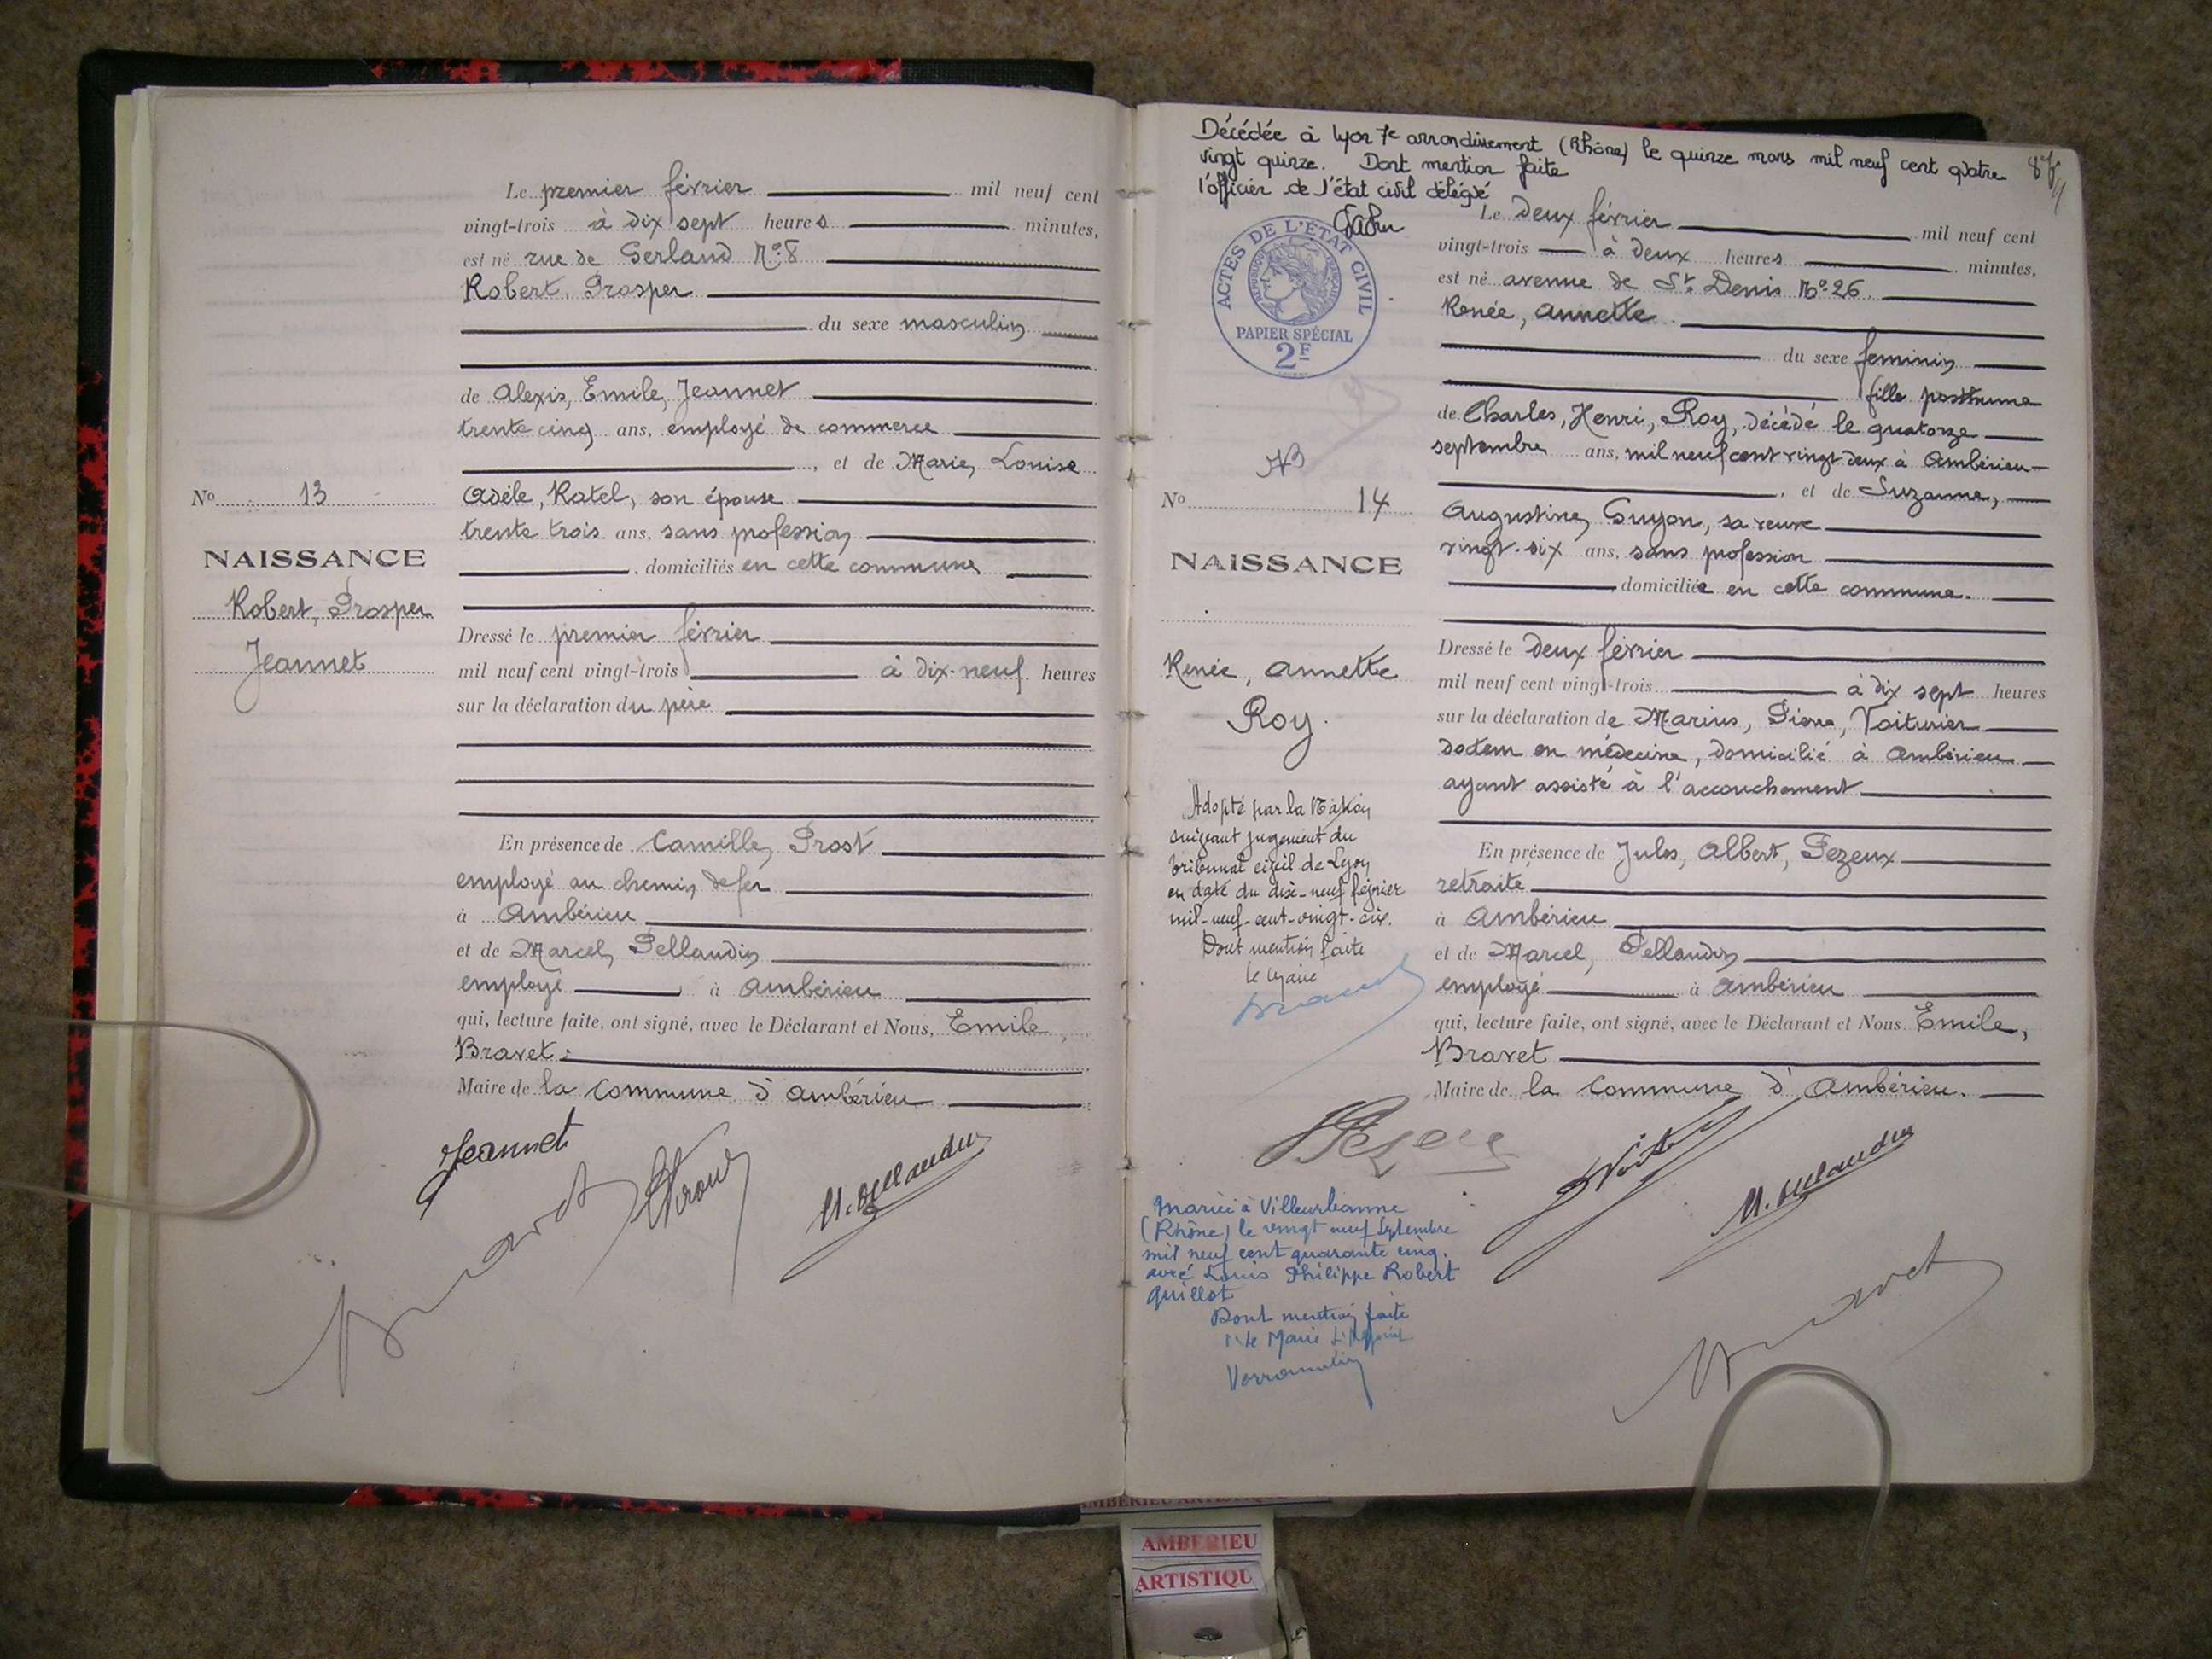 Le premier février mil neuf cent
vingt-trois à dix sept heures minutes,
est né rue de Gerland No 8
Robert, Prosper
du sexe masculin
de Alexis, Emile, Jeannet
trente cinq ans, employé de commerce
, et de Marie, Louise
Adèle, Ratel, son épouse
trente trois ans, sans profession
, domiciliés en cette commune
No 13
NAISSANCE
Robert, Prosper
Jeannet
Dressé le premier février
mil neuf cent vingt-trois à dix-neuf heures
sur la déclaration du père
En présence de Camille, Prost
employé au chemin de fer
à Ambérieu
et de Marcel, Pellaudin
employé à Ambérieu
qui, lecture faite, ont signé, avec le Déclarant et Nous, Emile,
Bravet
Maire de la commune d'Ambérieu
Jeannet
Bravet
M. Pellaudin
Décédée à Lyon 7e arrondissement (Rhône) le quinze mars mil neuf cent quatre
vingt quinze. Dont mention faite
l'officier de l'état civil délégué
ACTES DE L'ÉTAT CIVIL
RÉPUBLIQUE FRANÇAISE
PAPIER SPÉCIAL
2F
Le deux février mil neuf cent
vingt-trois à deux heures minutes,
est né avenue de St Denis No 26
Renée, Annette
du sexe feminin
fille posthume
de Charles, Henri, Roy, décédé le quatorze
septembre ans, mil neuf cent vingt deux à Ambérieu
, et de Suzanne,
Augustine, Guyon, sa veuve
vingt-six ans, sans profession
domiciliée en cette commune.
No 14
NAISSANCE
Renée, Annette
Roy.
Dressé le deux février
mil neuf cent vingt-trois à dix sept heures
sur la déclaration de Marius, Pierre, Voiturier
docteur en médecine, domicilié à Ambérieu
ayant assisté à l'accouchement
En présence de Jules, Albert, Pezeux
retraité
à Ambérieu
et de Marcel, Pellaudin
employé à Ambérieu
qui, lecture faite, ont signé, avec le Déclarant et Nous Emile,
Bravet
Maire de la commune d'Ambérieu.
Adopté par la Nation
suivant jugement du
tribunal civil de Lyon
en date du dix-neuf février
mil-neuf-cent-vingt-six.
Dont mention faite
Le Maire
Bravet
M. Pellaudin
Bravet
Mariée à Villeurbanne
(Rhône) le vingt neuf Septembre
mil neuf cent quarante cinq.
avec Louis Philippe Robert
Guillot
Dont mention faite
AMBERIEU ARTISTIQUE
AMBERIEU
ARTISTIQU